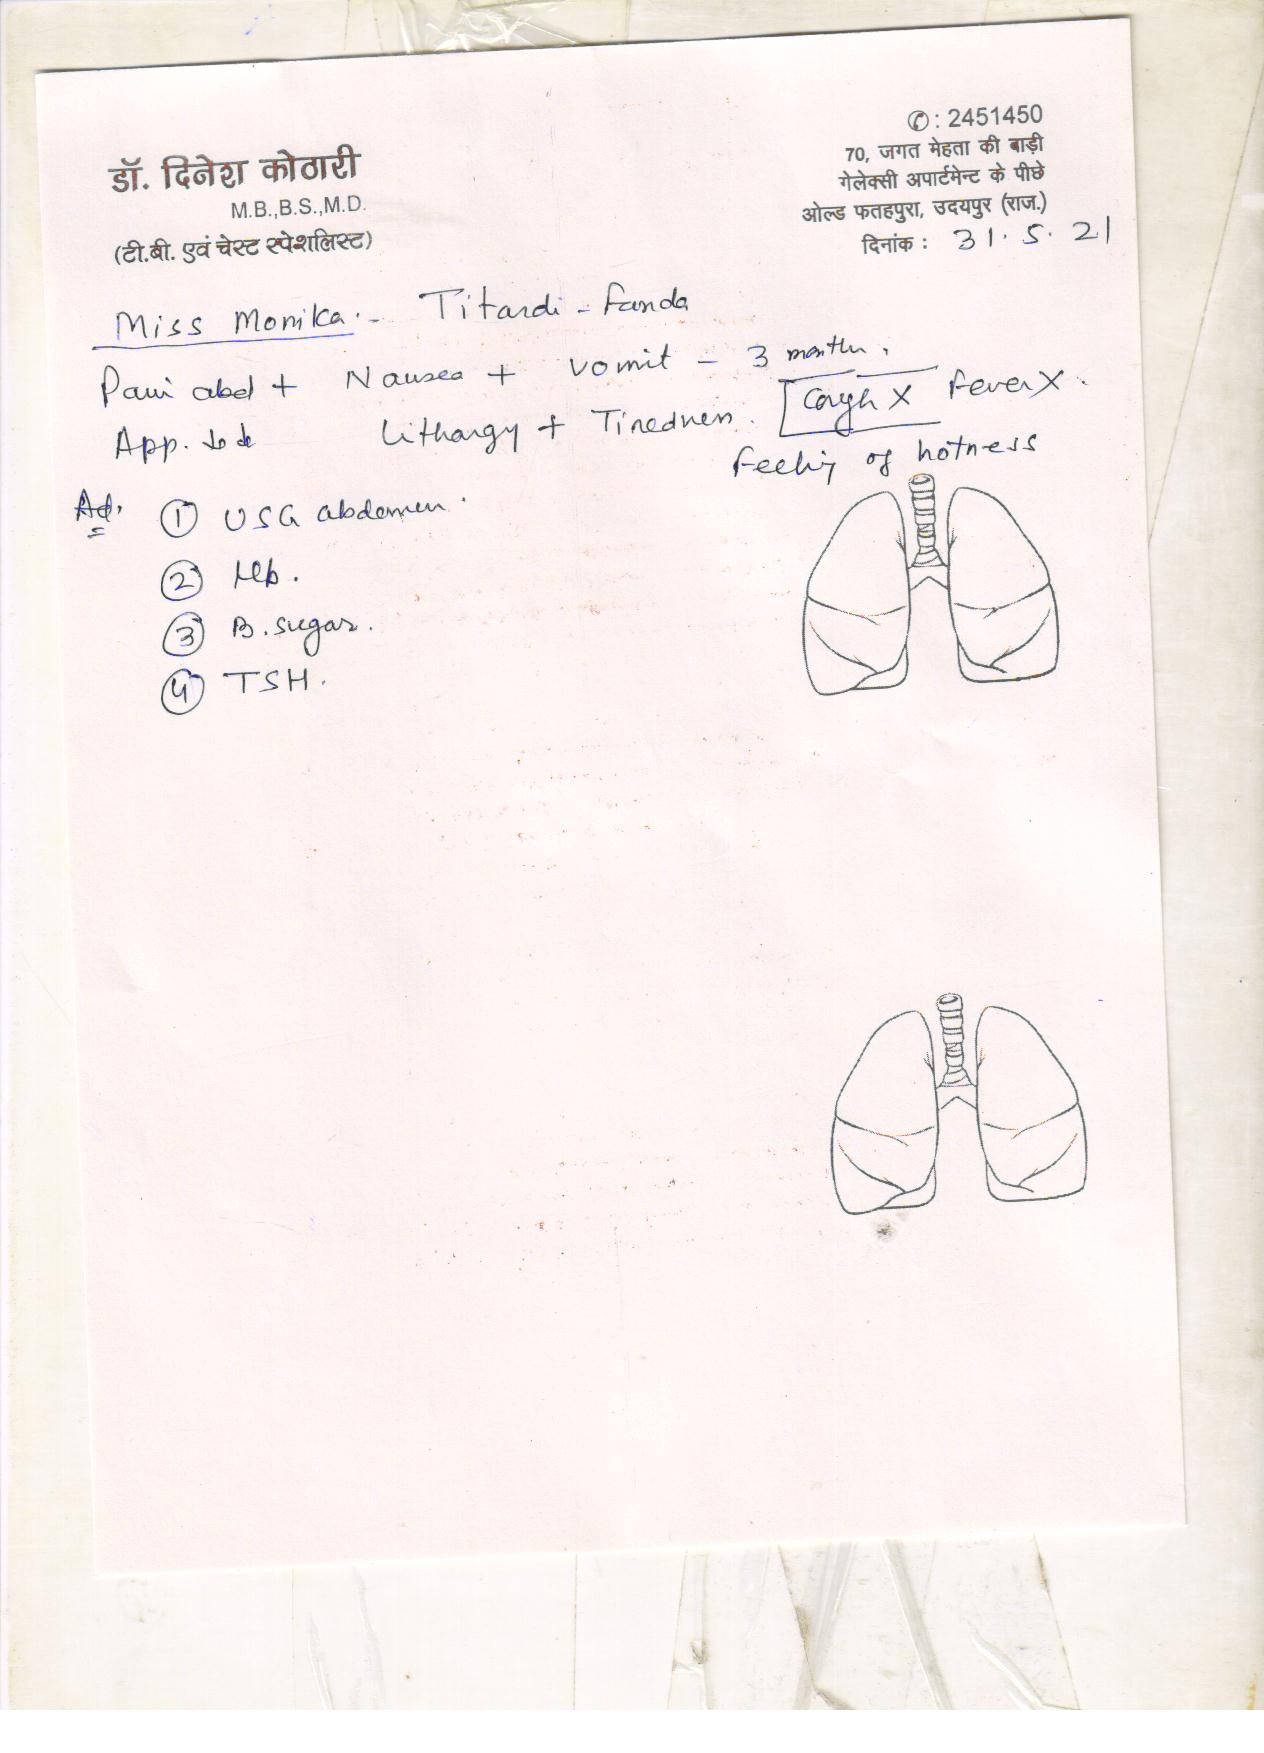 डॉ. दिनेश कोठारी
M.B.,B.S.,M.D.
(टी.बी. एवं चेस्ट स्पेशलिस्ट)
✆: 2451450
70, जगत मेहता की बाड़ी
गेलेक्सी अपार्टमेन्ट के पीछे
ओल्ड फतहपुरा, उदयपुर (राज.)
दिनांक : 31.5.21
Miss Monika. - Titardi - Fanda
Pain abd + Nausea + Vomit - 3 month.
App. Lithargy + Tiredness. Cough X Fever X.
Feeling of hotness
Ad.
① USG abdomen.
② Hb.
③ B. sugar.
④ TSH.